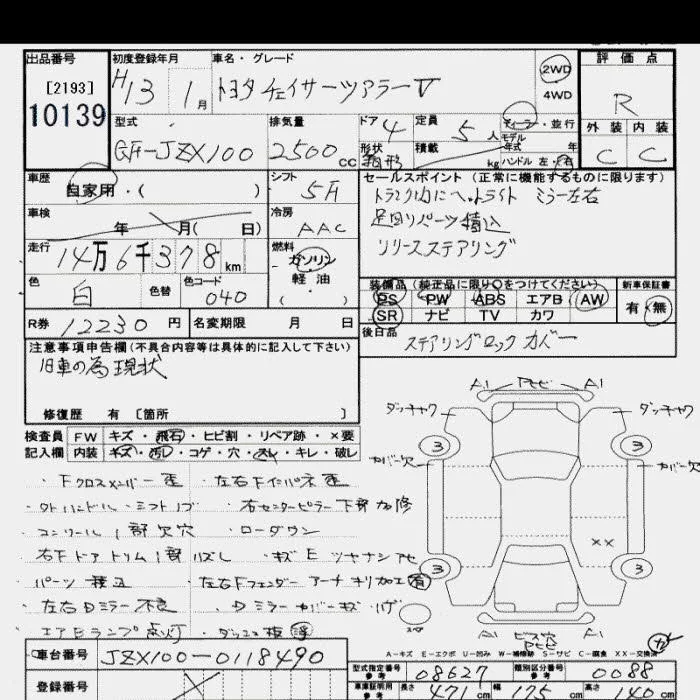 出品番号
[2193]
10139
初度登録年月
H13 1月
車名・グレード
トヨタ チェイサーツアラーV
2WD
4WD
評価点
R
外装 内装
C C
型式
GF-JZX100
排気量
2500cc
ドア 4
形状 箱形
定員 5人
積載 kg
ディーラー・並行
モデル年式 年
ハンドル 左・右
車歴
自家用・( )
シフト
5F
車検
年 月( 日)
冷房
AAC
走行
14万6千378km
燃料
ガソリン
軽油
( )
色
白
色替
色コード
040
R券 12230円
名変期限 月 日
セールスポイント(正常に機能するものに限ります)
トランク内にヘッドライト ミラー左右
足回りパーツ積込
リリースステアリング
装備品(純正品に限り○をつけてください)
PS PW ABS エアB AW
SR ナビ TV カワ
新車保証書
有・無
後日品
ステアリングロック カバー
注意事項申告欄(不具合内容等は具体的に記入して下さい)
旧車の為現状
修復歴 有 [箇所 ]
検査員記入欄
FW キズ・飛石・ヒビ割・リペア跡・×要
内装 キズ・汚レ・コゲ・穴・スレ・キレ・破レ
・Fクロスメンバー歪 ・左右Fインパネ歪
・外ハンドル・シフトノブ ・右センターピラー下部加修
コンソール1部欠穴 ・ローダウン
右FドアトリムI部ハズレ ・キズE ツヤナシアセ
パーツ積込 ・左右Fフェンダー アーチキリ加工有
・左右Dミラー不良 ・Dミラーカバーキズハゲ
・エアBランプ点灯 ・ダッシュ板浮
A1 トビ A1
ダッチャク
ダッチャク
カバー欠
カバー欠
3
3
3
3
××
スペア
A1
A1
A-キズ E-エクボ U-凹み W-補修跡 S-サビ C-腐食 XX-交換済
車台番号 JZX100-0118490
登録番号
型式指定番号 参考 08627
類別区分番号 参考 0088
車庫証明用 参考 長さ 471cm 幅 175cm 高さ 140cm